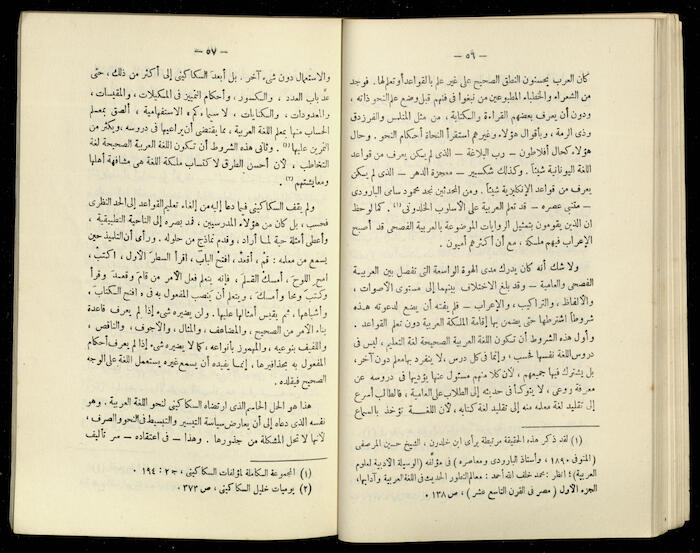 — ٥٦ —
كان العرب يحسنون النطق الصحيح على غير علم بالقواعد أو تعلم لها. فوجد
من الشعراء والخطباء المطبوعين من نبغوا في فنهم قبل وضع علم النحو ذاته،
ودون أن يعرف بعضهم القراءة والكتابة، من مثل المتلمس والفرزدق
وذى الرمة، وبأقوال هؤلاء وغيرهم استقرأ النحاة أحكام النحو. وحال
هؤلاء كحال أفلاطون - رب البلاغة - الذى لم يكن يعرف من قواعد
اللغة اليونانية شيئاً. وكذلك شكسبير - معجزة الدهر - الذى لم يكن
يعرف من قواعد الإنكليزية شيئاً. ومن المحدثين نجد محمود سامى البارودى
- متنبى عصره - قد تعلم العربية على الأسلوب الخلدونى (١). كما لوحظ
إن الذين يقومون بتمثيل الروايات الموضوعة بالعربية الفصحى قد أصبح
الإعراب فيهم ملكة، مع أن أكثرهم أميون.
ولا شك أنه كان يدرك مدى الهوة الواسعة التى تفصل بين العربية
الفصحى والعامية - وقد بلغ الاختلاف بينهما إلى مستوى الأصوات،
والألفاظ، والتراكيب، والإعراب - فلم يفته أن يضع لدعوته هذه
شروطاً اشترطها حتى يضمن بها إقامة الملكة العربية دون تعلم القواعد.
وأول هذه الشروط أن تكون اللغة العربية الصحيحة لغة التعليم، ليس فى
دروس اللغة نفسها فحسب، وإنما فى كل درس، لا ينفرد بها معلم دون آخر،
بل يشترك فيها جميعهم، لأن كلا منهم مسئول عنها يؤديها فى دروسه عن
معرفة روعى، لا يتوكأ فى حديثه إلى الطلاب على العامية، فالطالب أسرع
إلى تقليد لغة معلمه منه إلى تقليد لغة كتابه، لأن اللغة تؤخذ بالسماع
(١) لقد ذكر هذه الحقيقة مرتبطة برأى ابن خلدون، الشيخ حسين المرصفى
(المتوفى ١٨٩٠، وأستاذ البارودى ومعاصره) فى مؤلفه (الوسيلة الأدبية لعلوم
العربية)؛ انظر: محمد خلف الله أحمد: معالم التطور الحديث فى اللغة العربية وآدابها،
الجزء الأول (مصر فى القرن التاسع عشر)، ص ١٣٨.
— ٥٧ —
والاستعمال دون شىء آخر. بل أبعد السكاكينى إلى أكثر من ذلك، حتى
عدّ باب العدد، والكسور، وأحكام التمييز فى المكيلات، والمقيسات،
والمعدودات، والكنايات، لا سيما «كم» الاستفهامية، ألصق بمعلم
الحساب منها بمعلم اللغة العربية، مما يقتضى أن يراعيها فى دروسه ويكثر من
التمرين عليها (١). وثانى هذه الشروط أن تكون اللغة العربية الصحيحة لغة
التخاطب، لأن أحسن الطرق لاكتساب ملكة اللغة هى مشافهة أهلها
ومعايشتهم (٢).
ولم يقف السكاكينى فيما دعا إليه من إلغاء تعليم القواعد إلى الحد النظرى
فحسب، بل كان من هؤلاء المدرسيين، فمد بصره إلى الناحية التطبيقية،
وأعطى أمثلة حية لما أراد، وقدم نماذج من حلوله. ورأى أن التلميذ حين
يسمع من معلمه: قُمْ، أقعدْ، افتح البابَ، اقرأ السطرَ الأول، اكتبْ،
امح اللوحَ، أمسك القلمَ، فإنه يتعلم فعل الأمر من قام وقعد وقرأ
وكتب ومحا وأمسك، ويتعلم أن ينصب المفعول به فى «افتح الكتابَ»
وأشباهها، ثم يقيس أمثالها عليها. ولن يضيره شىء إذا لم يعرف قاعدة
بناء الأمر من الصحيح، والمضاعف، والمثال، والأجوف، والناقص،
واللفيف بنوعيه، والمهموز بأنواعه، كما لا يضيره شىء إذا لم يعرف أحكام
المفعول به بحذافيرها، إنما يفيده أن يسمع غيره يستعمل اللغة على الوجه
الصحيح فيقلده.
هذا هو الحل الحاسم الذى ارتضاه السكاكينى لنحو اللغة العربية. وهو
نفسه الذى دعاه إلى أن يعارض سياسة التيسير والتبسيط فى النحو والصرف،
لأنها لا تحل المشكلة من جذورها. وهذا - فى اعتقاده - سر تأليف
(١) المجموعة الكاملة لمؤلفات السكاكينى، ج ٢: ١٩٤.
(٢) يوميات خليل السكاكينى، ص ٣٧٣.